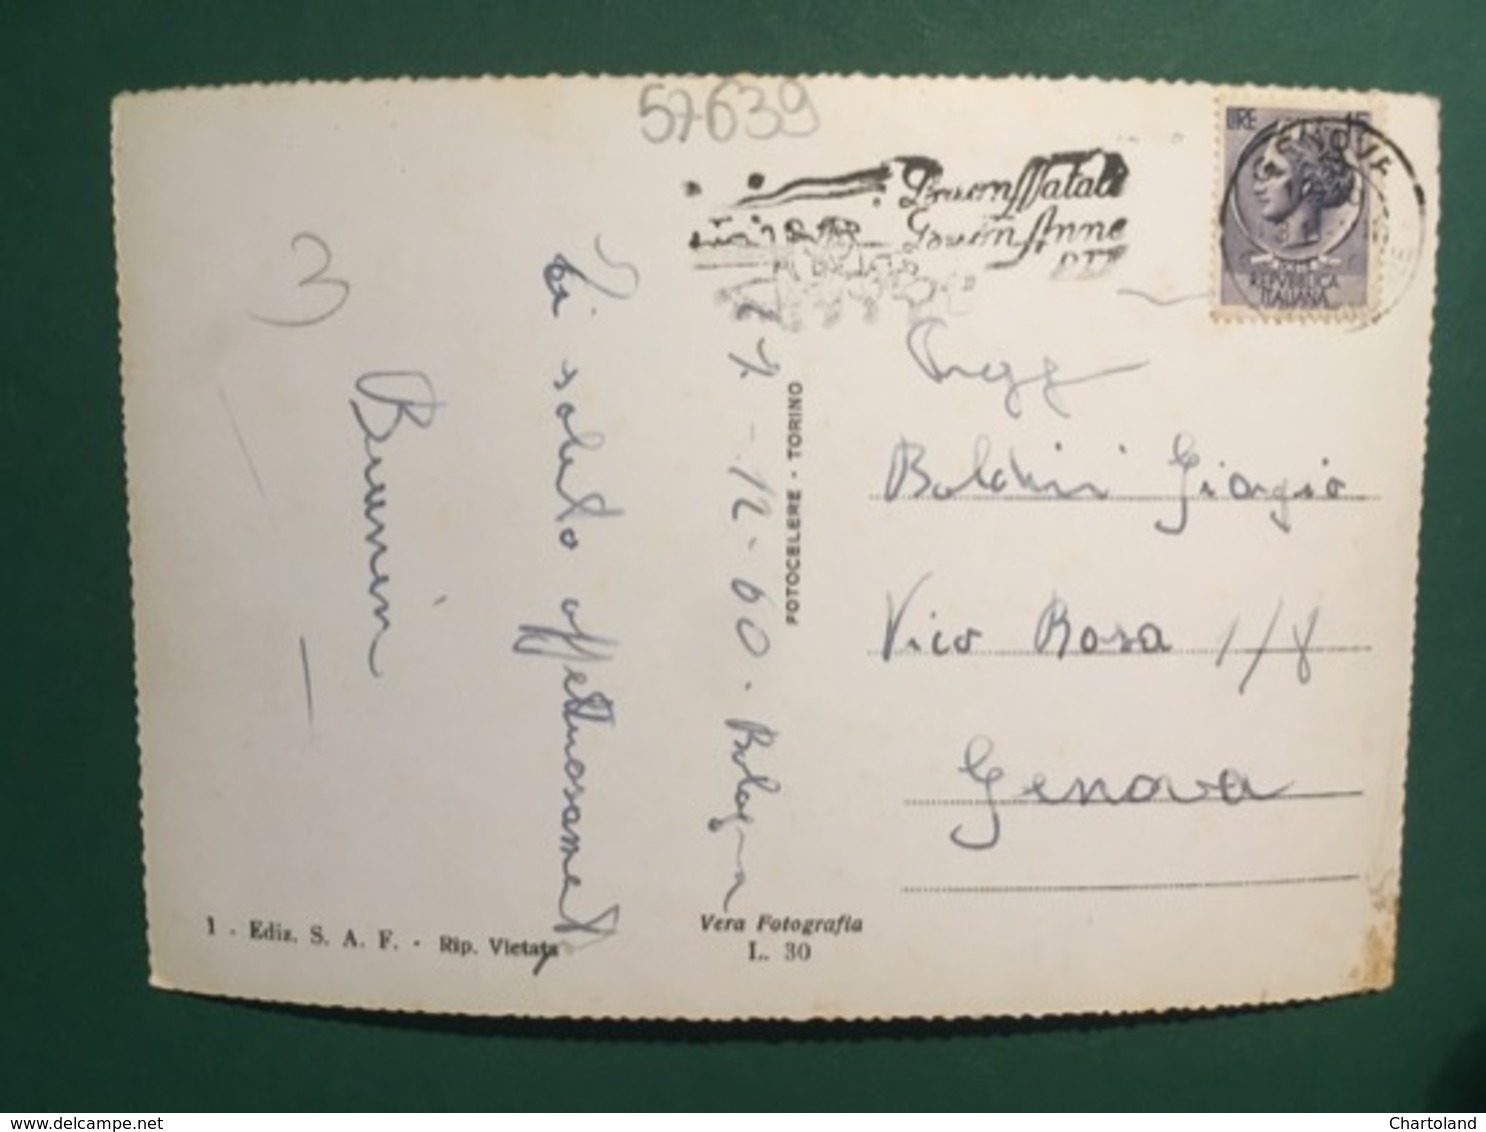 57-639
Buon Natale
Buon Anno
LIRE 15
GENOVA
REPVBBLICA
ITALIANA
3
Ti saluto affettuosamente
27-12-60. Bologna
FOTOCELERE - TORINO
Boldrini Giorgio
Vico Rosa 1/8
Genova
1 - Ediz. S. A. F. - Rip. Vietata
Vera Fotografia
L. 30
www.delcampe.net
Chartoland